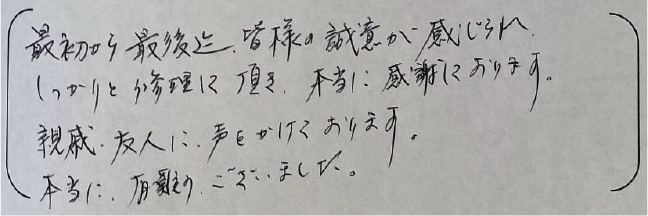 最初から最後迄、皆様の誠意が感じられ、
しっかりと修理して頂き、本当に感謝しております。
親戚、友人に、声をかけております。
本当に、有難う、ございました。